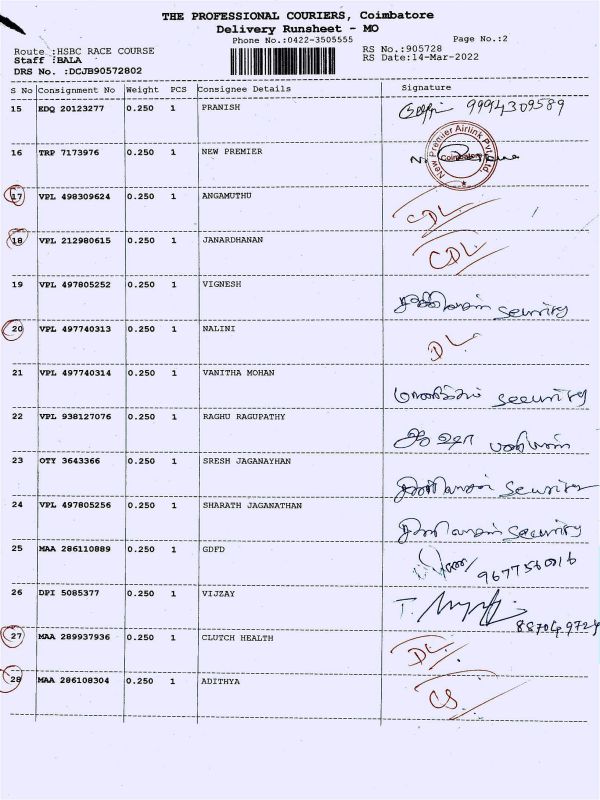 THE PROFESSIONAL COURIERS, Coimbatore
Delivery Runsheet - MO
Phone No.:0422-3505555
Page No.:2
Route :HSBC RACE COURSE
RS No.:905728
Staff :BALA
RS Date:14-Mar-2022
DRS No. :DCJB90572802
S No Consignment No Weight PCS Consignee Details Signature
15 EDQ 20123277 0.250 1 PRANISH 9994309589
16 TRP 7173976 0.250 1 NEW PREMIER New Premier Airlink Pvt Ltd Coimbatore
17 VPL 498309624 0.250 1 ANGAMUTHU CDL
18 VPL 212980615 0.250 1 JANARDHANAN CDL
19 VPL 497805252 0.250 1 VIGNESH security
20 VPL 497740313 0.250 1 NALINI DL
21 VPL 497740314 0.250 1 VANITHA MOHAN security
22 VPL 938127076 0.250 1 RAGHU RAGUPATHY
23 OTY 3643366 0.250 1 SRESH JAGANAYHAN Security
24 VPL 497805256 0.250 1 SHARATH JAGANATHAN Security
25 MAA 286110889 0.250 1 GDFD
26 DPI 5085377 0.250 1 VIJZAY
27 MAA 289937936 0.250 1 CLUTCH HEALTH DL
28 MAA 286108304 0.250 1 ADITHYA CS